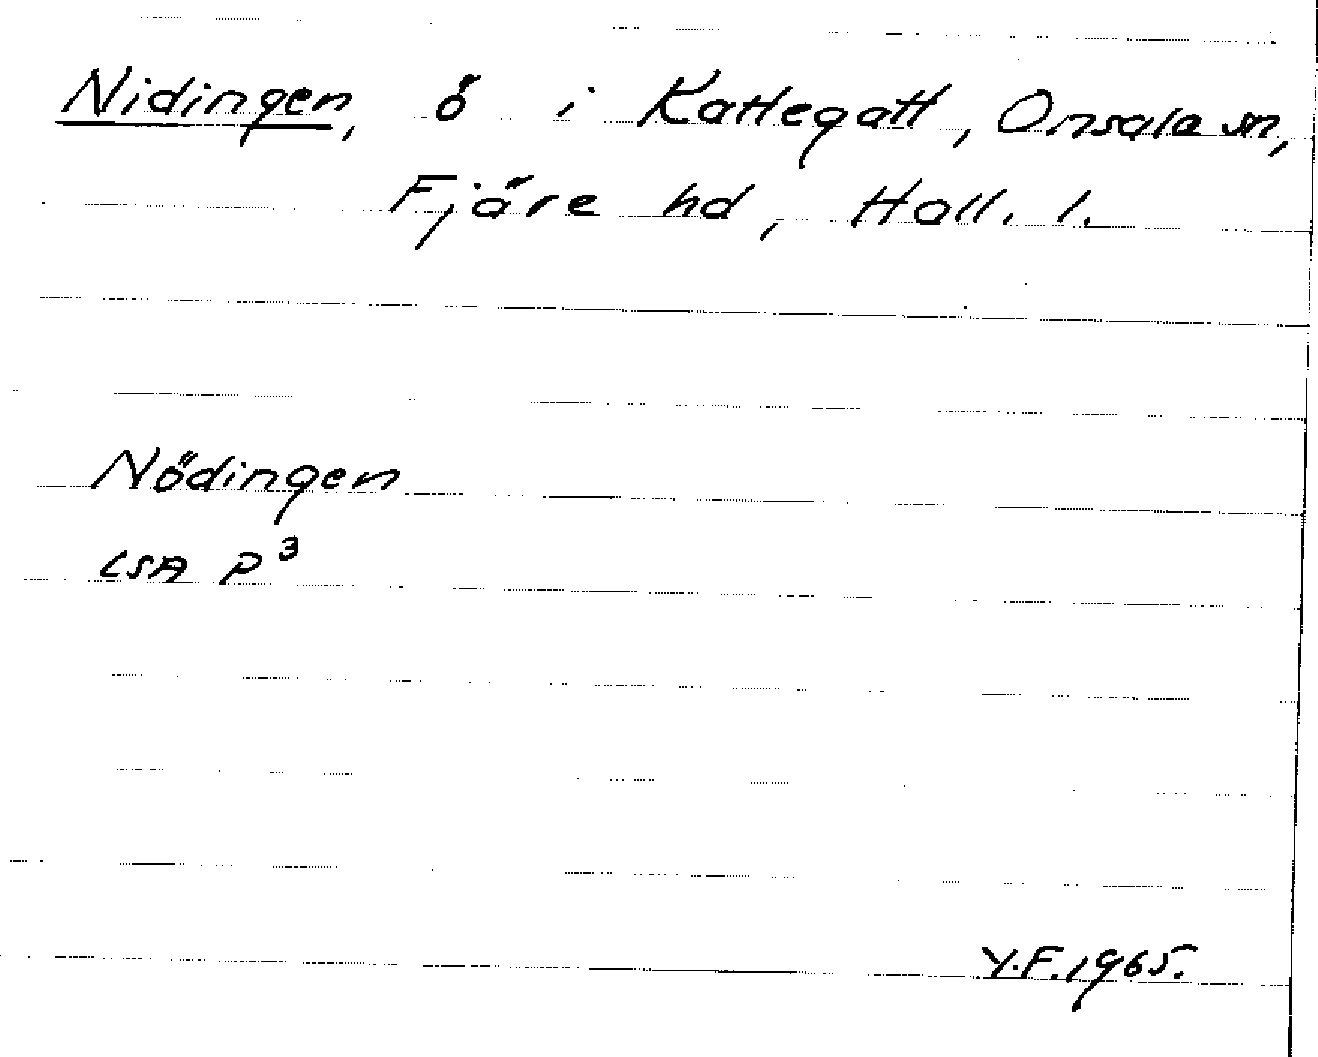 Nidingen, ö i Kattegatt, Onsala sn,
Fjäre hd, Hall. l.
Nödingen
LSA P³
Y.F. 1965.